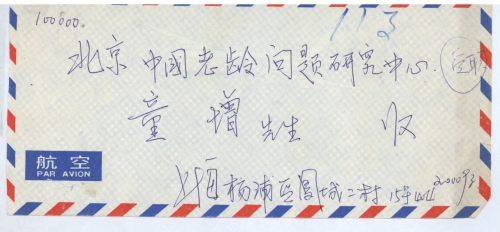 100000.
113
北京 中国老龄问题研究中心.
童 增 先生 收
航空
PAR AVION
上海 杨浦区 国 二村 15号
200093